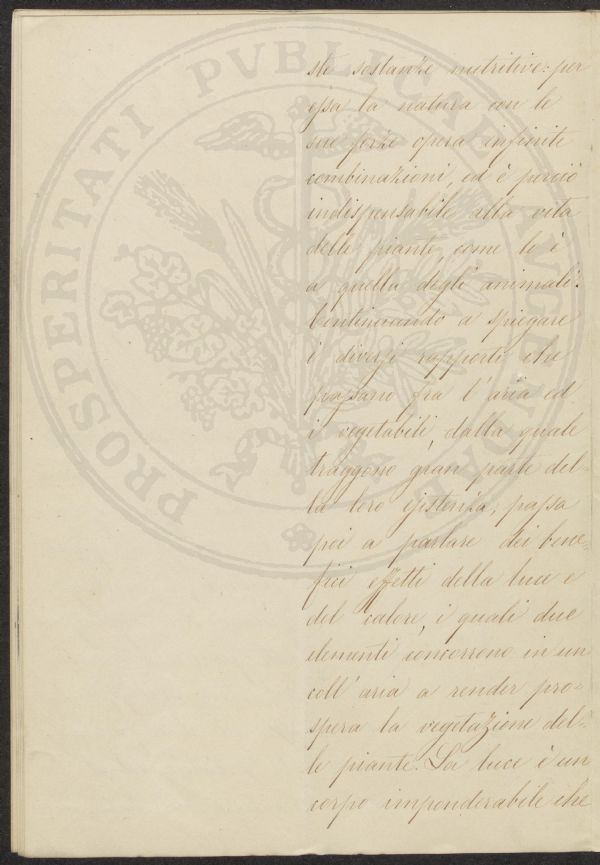 PROSPERITATI PVBLICAE AVGENDAE
ste sostanze nutritive: per
essa la natura con le
sue forze opera infinite
combinazioni, ed è perciò
indispensabile alla vita
delle piante, come lo è
a quella degli animali.
Continuando a spiegare
i diversi rapporti che
passano fra l'aria ed
i vegetabili, dalla quale
traggono gran parte del=
la loro esistenza, passa
poi a parlare dei bene=
fici effetti della luce e
del calore, i quali due
elementi concorrono in un
coll'aria a render pro=
spera la vegetazione del=
le piante. La luce è un
corpo imponderabile che